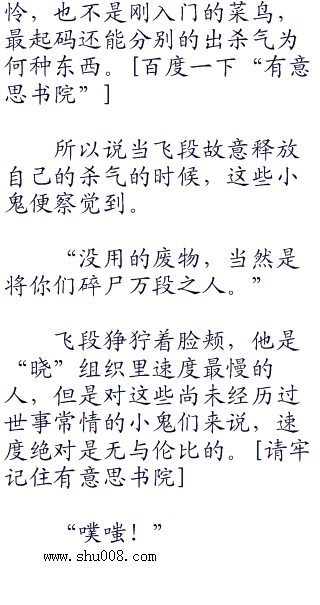 怜，也不是刚入门的菜鸟，
最起码还能分别的出杀气为
何种东西。[百度一下“有意
思书院”]
所以说当飞段故意释放
自己的杀气的时候，这些小
鬼便察觉到。
“没用的废物，当然是
将你们碎尸万段之人。”
飞段狰狞着脸颊，他是
“晓”组织里速度最慢的
人，但是对这些尚未经历过
世事常情的小鬼们来说，速
度绝对是无与伦比的。[请牢
记住有意思书院]
“噗嗤！”
www.shu008.com